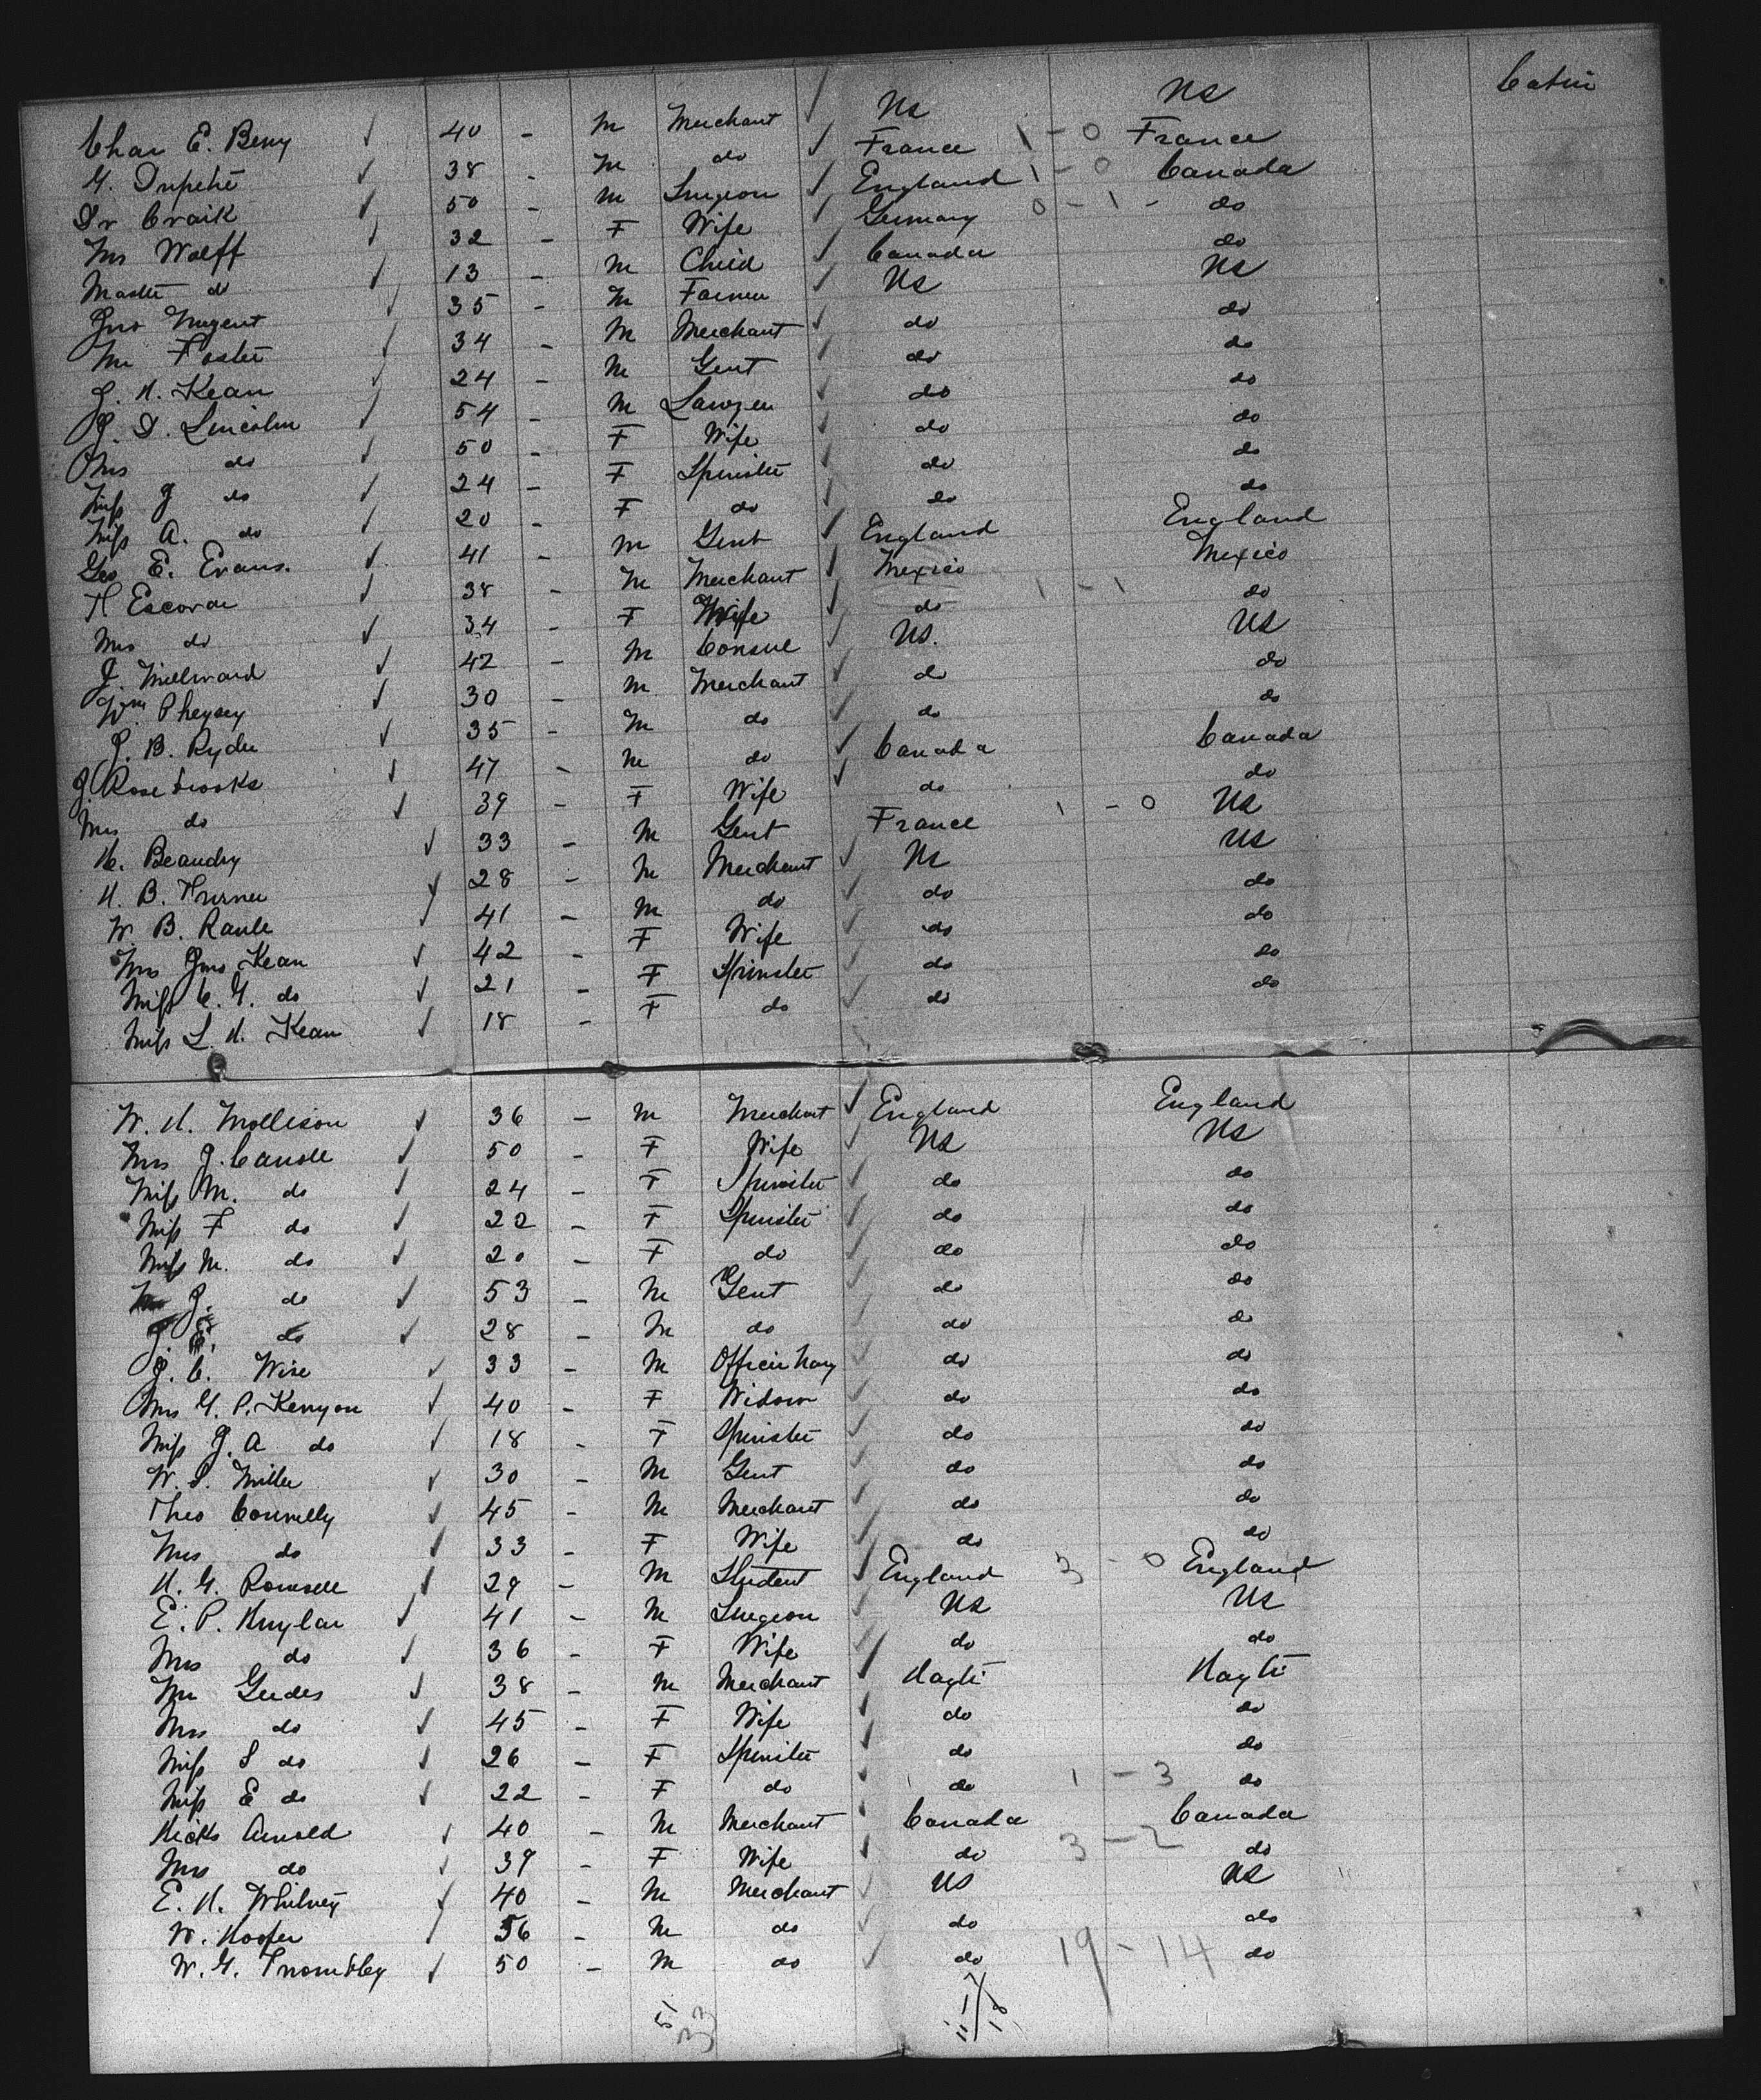 Chas E. Berry 40 - M Merchant US US Cabin
G. Dupetié 38 - M do France 1-0 France
Dr Craik 50 - M Surgeon England 1-0 Canada
Mrs Wolff 32 - F Wife Germany 0-1- do
Master do 13 - M Child Canada do
Jno Nugent 35 - M Farmer US US
Mr Foster 34 - M Merchant do do
J. H. Kean 24 - M Gent do do
J. D. Lincoln 54 - M Lawyer do do
Mrs do 50 - F Wife do do
Miss J do 24 - F Spinster do do
Miss A. do 20 - F do do do
Geo E. Evans. 41 - M Gent England England
T Escovar 38 - M Merchant Mexico Mexico
Mrs do 34 - F Wife do 1-1 do
J. Millward 42 - M Consul US. US
Wm Pheysey 30 - M Merchant do do
J. B. Ryder 35 - M do do do
J. Rosebrooks 47 - M do Canada Canada
Mrs do 39 - F Wife do do
H. Beaudry 33 - M Gent France 1-0 US
H. B. Turner 28 - M Merchant US US
W. B. Ranle 41 - M do do do
Mrs Jno Kean 42 - F Wife do do
Miss C. G. do 21 - F Spinster do do
Miss L. H. Kean 18 - F do do do
W. H. Mollison 36 - M Merchant England England
Mrs J. Caudle 50 - F Wife US US
Miss M. do 24 - F Spinster do do
Miss F do 22 - F Spinster do do
Miss M. do 20 - F do do do
J. do 53 - M Gent do do
J. E. do 28 - M do do do
J. C. Wise 33 - M Officer Navy do do
Mrs G. P. Kenyon 40 - F Widow do do
Miss J. A do 18 - F Spinster do do
W. S. Miller 30 - M Gent do do
Theo Connelly 45 - M Merchant do do
Mrs do 33 - F Wife do do
H. G. Rowsell 29 - M Student England 3-0 England
E. P. Huylar 41 - M Surgeon US US
Mrs do 36 - F Wife do do
Mr Geedes 38 - M Merchant Hayti Hayti
Mrs do 45 - F Wife do do
Miss S do 26 - F Spinster do do
Miss E do 22 - F do do 1-3 do
Hicks Arnold 40 - M Merchant Canada Canada
Mrs do 39 - F Wife do 3-2 do
E. H. Whitney 40 - M Merchant US US
W. Hooper 56 - M do do do
W. G. Trombley 50 - M do do 19-14 do
33